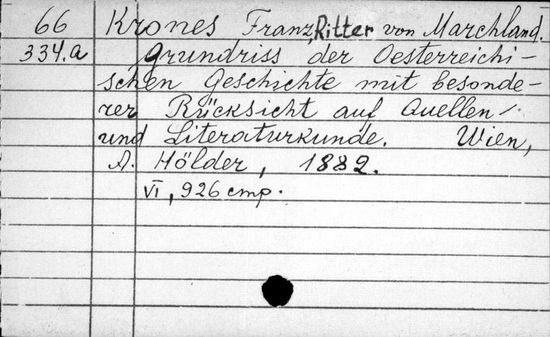 66 Krones Franz, Ritter von Marchland.
334.a Grundriss der Oesterreichi-
schen Geschichte mit besonde-
rer Rücksicht auf Quellen-
und Literaturkunde. Wien,
A. Hölder, 1882.
VI, 926 стр.